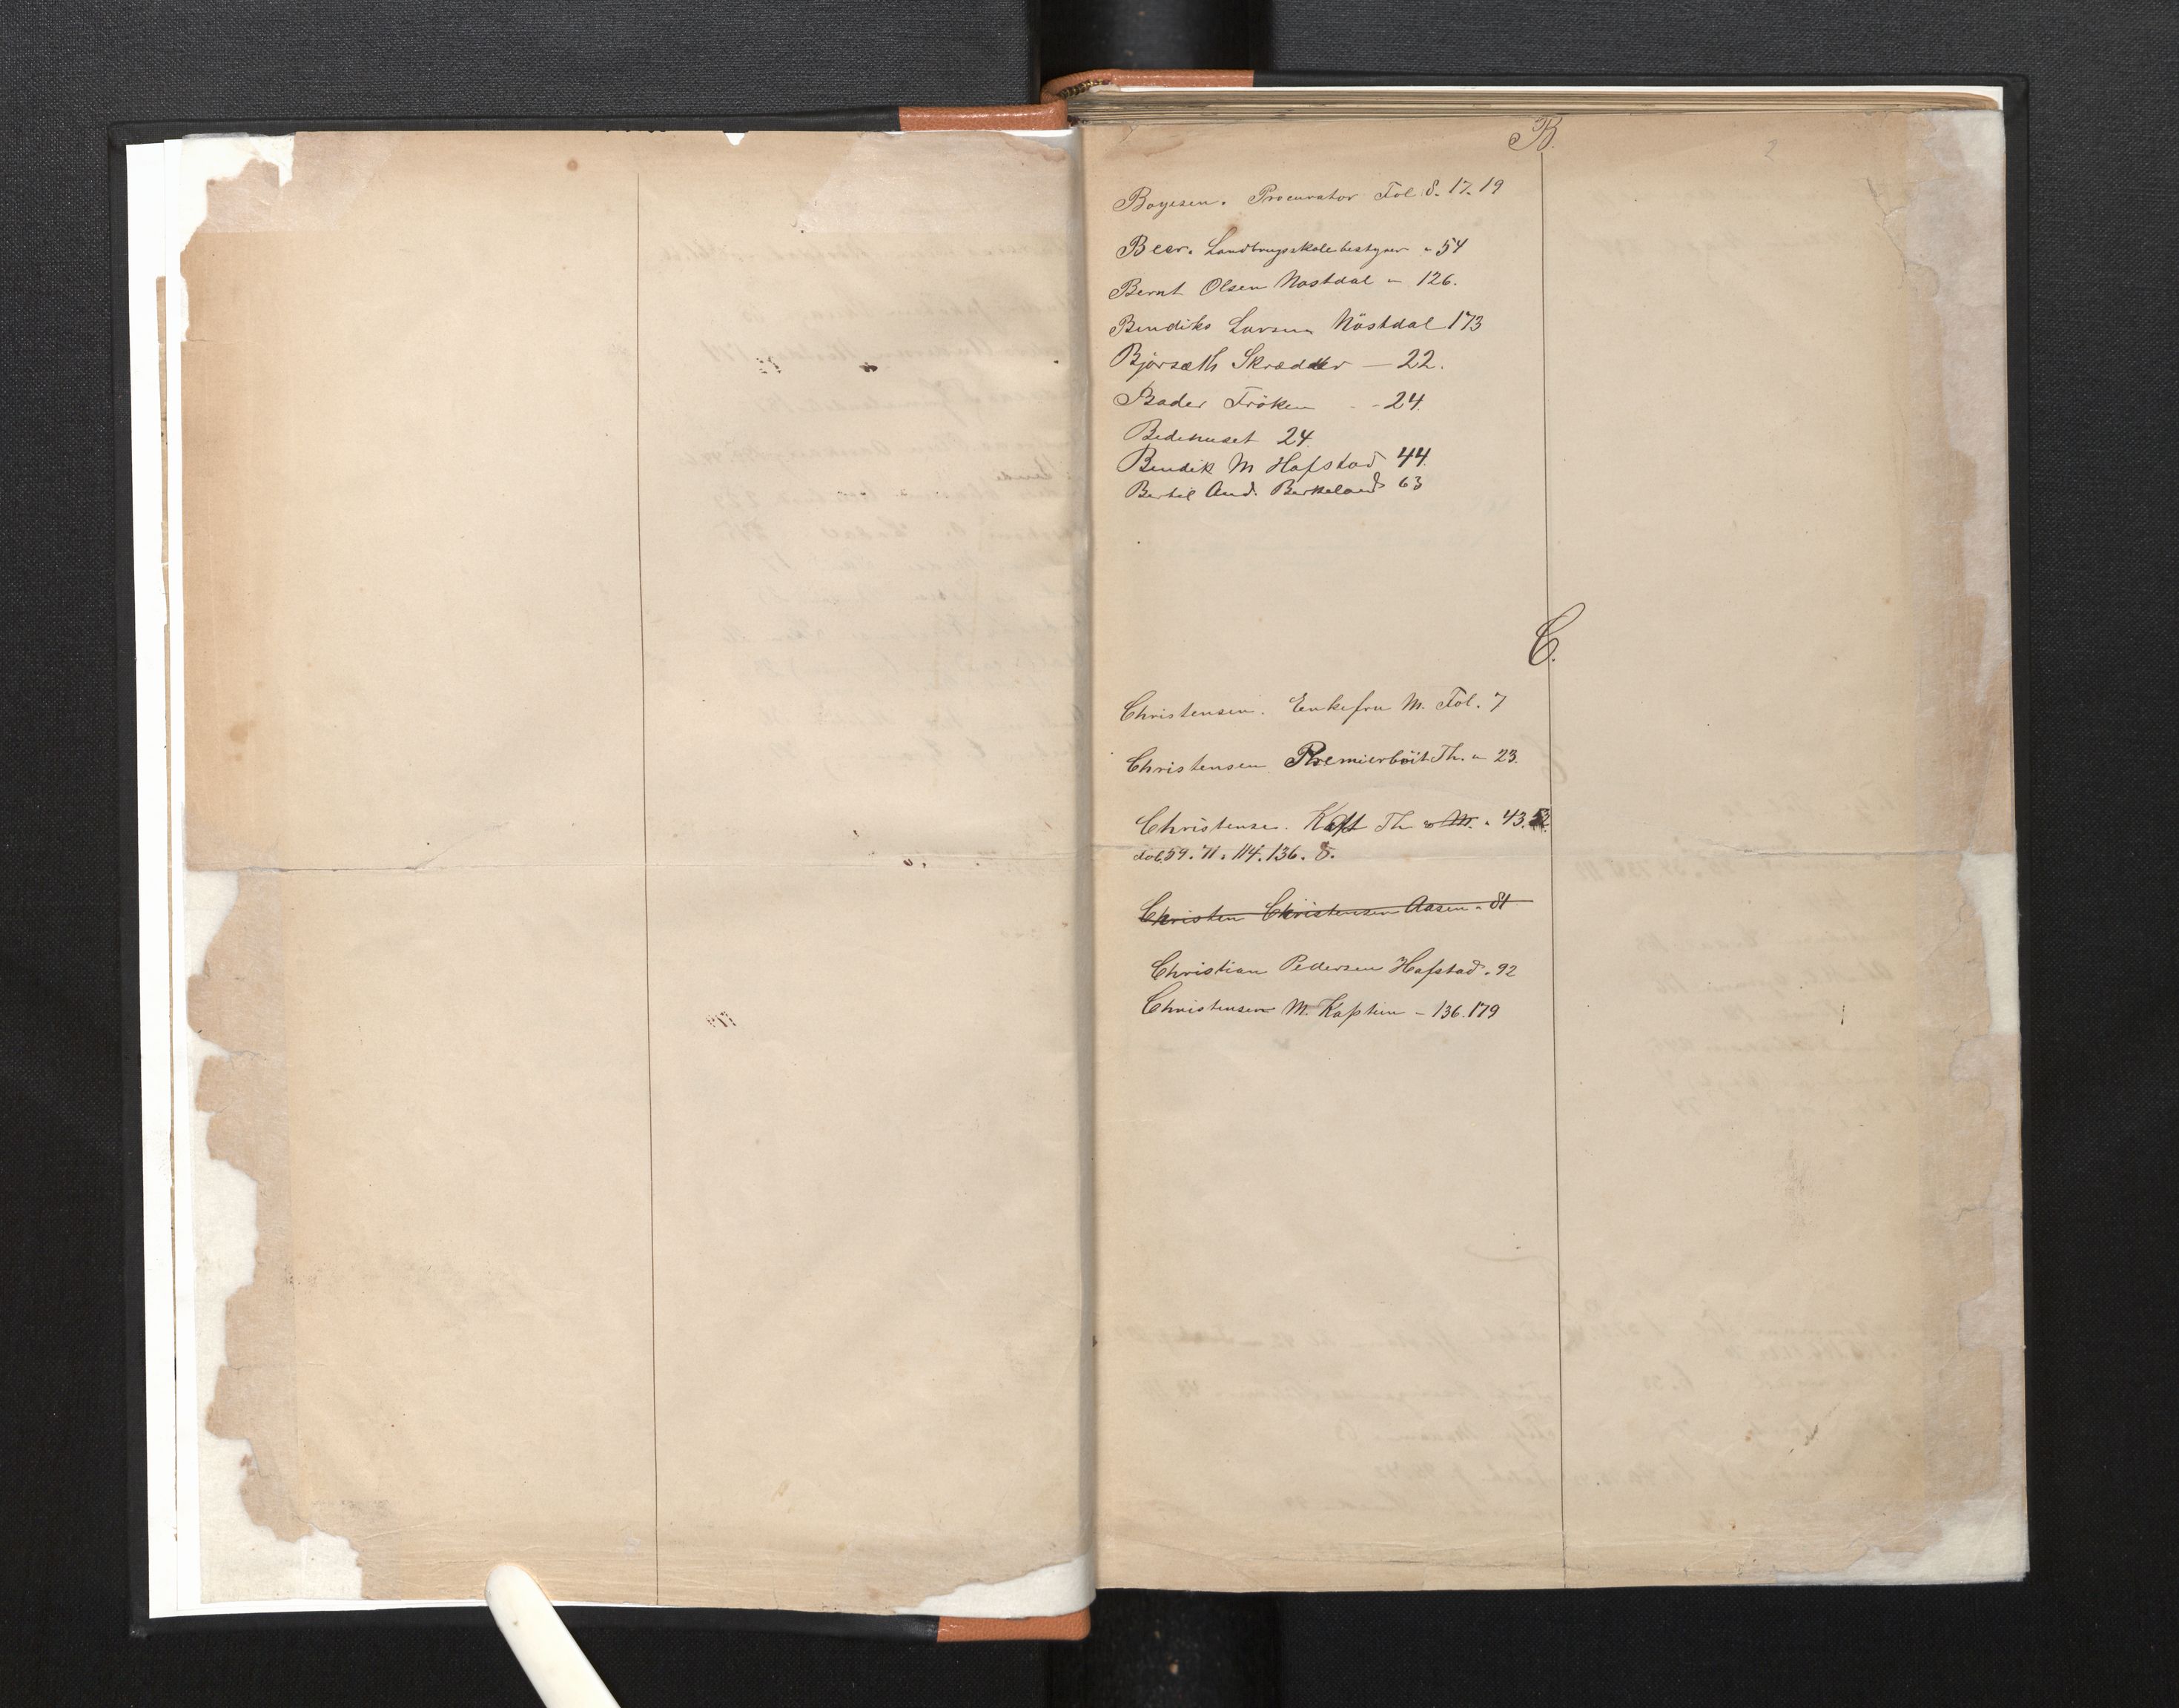 B.
2
Boyesen. Procurator Fol 8. 17. 19
Beer. Landbrugsskolebestyrer " 54
Bernt Olsen Nøstdal " 126.
Bendiks Larsen Nöstdal 173
Björsæth Skrædder — 22.
Bader Fröken - - 24.
Bedehuset 24.
Bendik M Hafstad 44.
Bertel And. Berkeland 63
C.
Christensen. Enkefru M. Fol. 7
Christensen Premierlöit Th. " 23.
Christense. Kapt Th & M. " 43. 52.
Fol. 59. 71. 114. 136. 8.
Christen Christensen Aasen " 81
Christian Pedersen Hafstad " 92
Christensen M. Kaptein - 136. 179